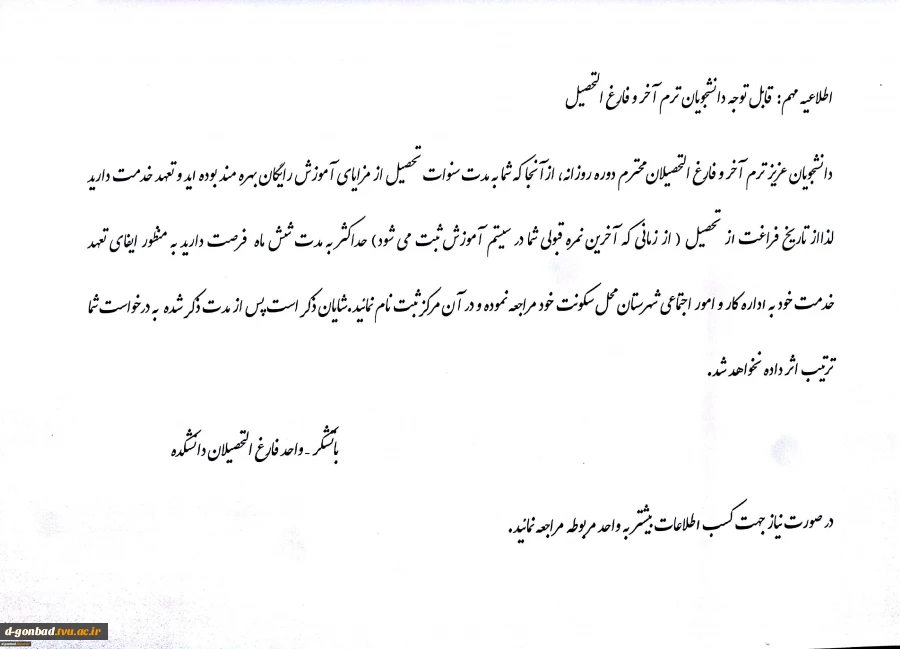 اطلاعیه مهم: قابل توجه دانشجویان ترم آخر و فارغ التحصیل
دانشجویان عزیز ترم آخر و فارغ التحصیلان محترم دوره روزانه، از آنجا که شما به مدت سنوات تحصیل از مزایای آموزش رایگان بهره مند بوده اید و تعهد خدمت دارید
لذا از تاریخ فراغت از تحصیل ( از زمانی که آخرین نمره قبولی شما در سیستم آموزش ثبت می شود) حداکثر به مدت شش ماه فرصت دارید به منظور ایفای تعهد
خدمت خود به اداره کار و امور اجتماعی شهرستان محل سکونت خود مراجعه نموده و در آن مرکز ثبت نام نمائید. شایان ذکر است پس از مدت ذکر شده به درخواست شما
ترتیب اثر داده نخواهد شد.
باتشکر - واحد فارغ التحصیلان دانشکده
در صورت نیاز جهت کسب اطلاعات بیشتر به واحد مربوطه مراجعه نمائید.
d-gonbad.tvu.ac.ir